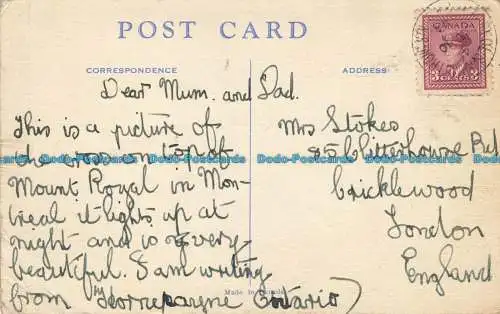 POST CARD
CANADA
3 CENTS 3
CORRESPONDENCE
ADDRESS
Dear Mum. and Dad.
This is a picture of
the cross on top of
Mount Royal in Mon-
treal it lights up at
night and is very
beautiful. I am writing
from Ontario
Mrs Stokes
85 Rd
Cricklewood
London
England
Made in Canada
Dodo-Postcards Dodo-Postcards Dodo-Postcards Dodo-Postcards